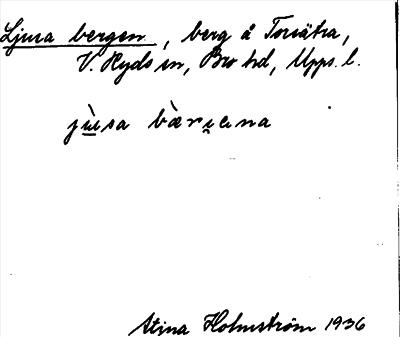 Ljusa bergen, berg å Torsätra,
V. Ryds sn, Bro hd, Upps. l.
jùsa bær e na
Stina Holmström 1936